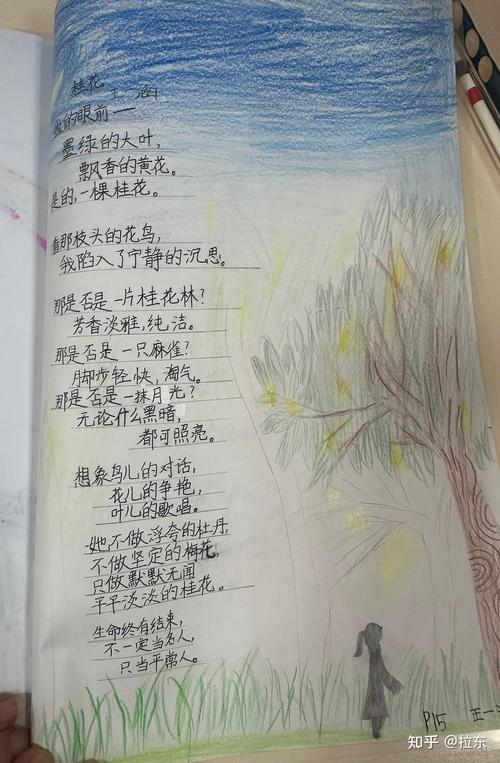 桂花
王一涵
我的眼前——
墨绿的大叶,
飘香的黄花。
是的,一棵桂花。
看那枝头的花鸟,
我陷入了宁静的沉思。
那是否是一片桂花林?
芳香淡雅,纯洁。
那是否是一只麻雀?
脚步轻快,淘气。
那是否是一抹月光?
无论什么黑暗,
都可照亮。
想象鸟儿的对话,
花儿的争艳,
叶儿的歌唱。
她,不做浮夸的牡丹,
不做坚定的梅花,
只做默默无闻
平平淡淡的桂花。
生命终有结束,
不一定当名人,
只当平常人。
P15 王一
知乎 @拉东